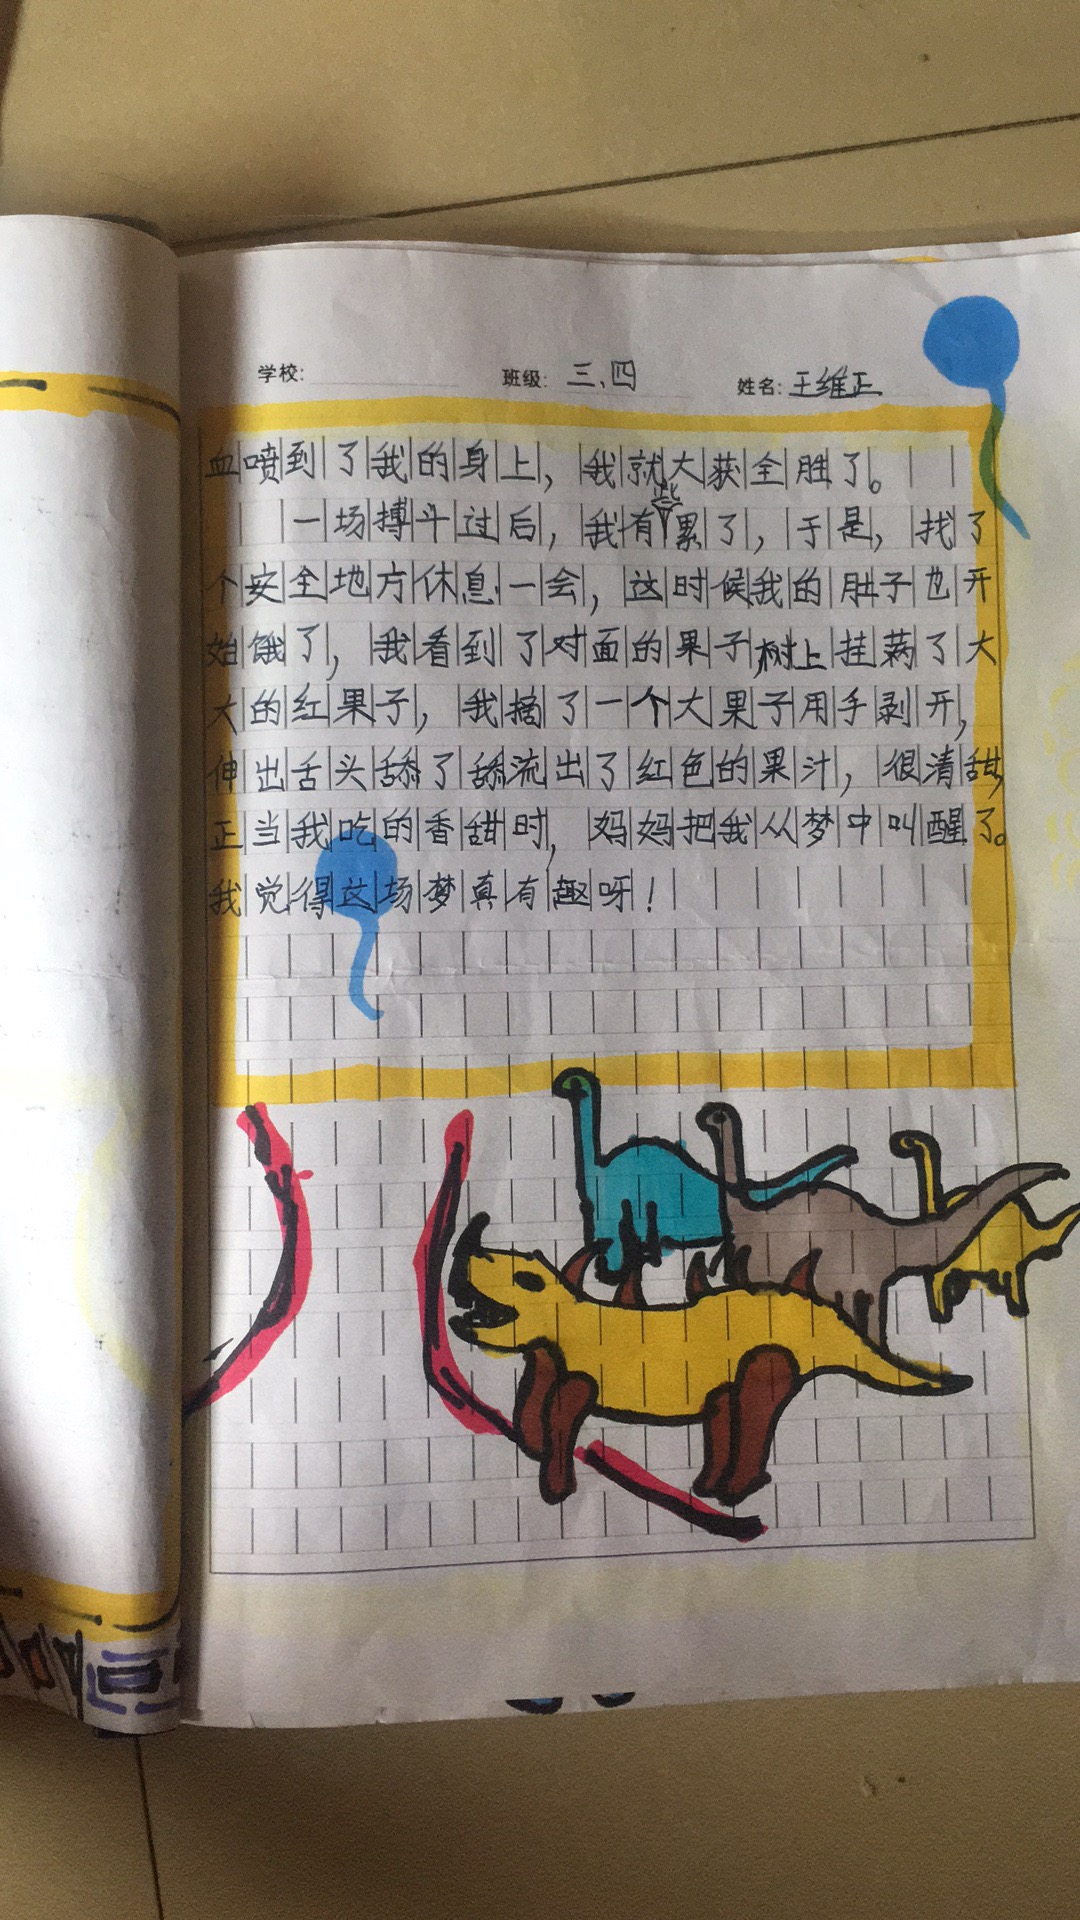 学校: 班级: 三、四 姓名: 王维正
血喷到了我的身上，我就大获全胜了。
一场搏斗过后，我有些累了，于是，找了
个安全地方休息一会，这时候我的肚子也开
始饿了，我看到了对面的果子树上挂满了大
大的红果子，我摘了一个大果子用手剥开，
伸出舌头舔了舔流出了红色的果汁，很清甜，
正当我吃的香甜时，妈妈把我从梦中叫醒了。
我觉得这场梦真有趣呀！